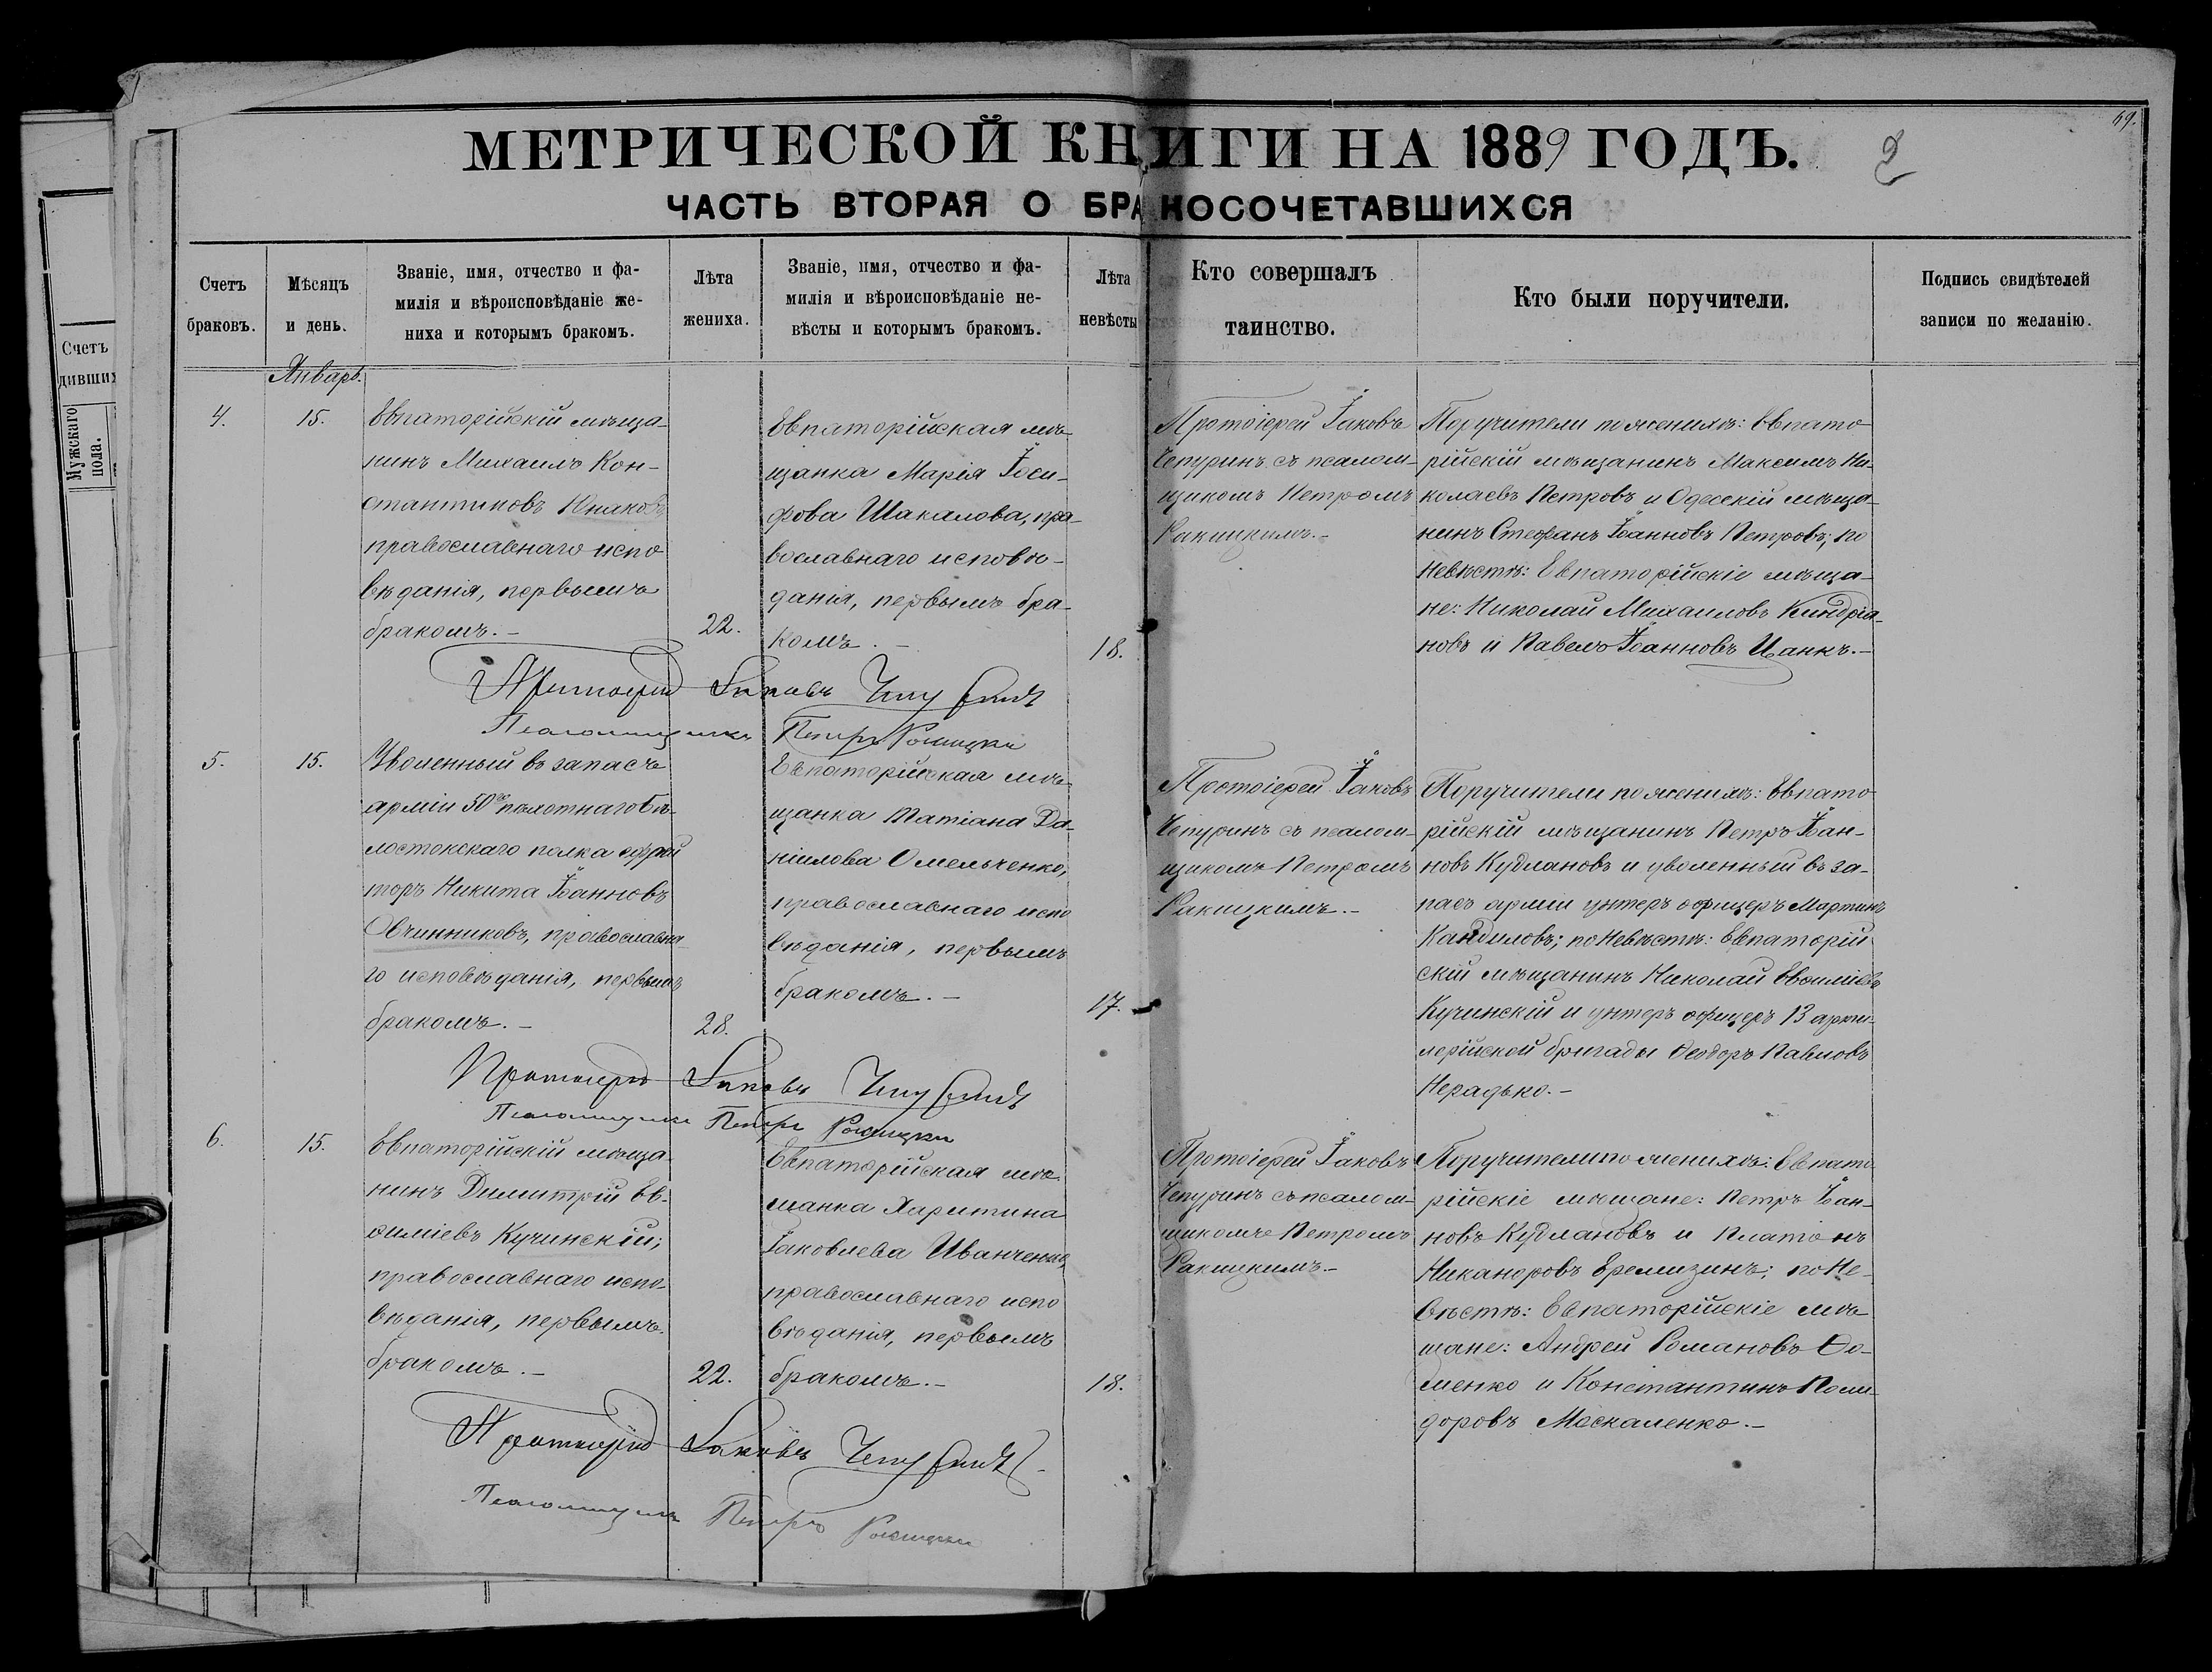 69.
МЕТРИЧЕСКОЙ КНИГИ НА 1889 ГОДЪ. 2
ЧАСТЬ ВТОРАЯ О БРАКОСОЧЕТАВШИХСЯ
Счетъ
браковъ.
Мѣсяцъ
и день.
Званіе, имя, отчество и фа-
милія и вѣроисповѣданіе же-
ниха и которымъ бракомъ.
Лѣта
жениха.
Званіе, имя, отчество и фа-
милія и вѣроисповѣданіе не-
вѣсты и которымъ бракомъ.
Лѣта
невѣсты
Кто совершалъ
таинство.
Кто были поручители.
Подпись свидѣтелей
записи по желанію.
Счетъ
дивших
Мужскаго
пола.
Январь.
4.
15.
Евпаторійскій мѣща-
нинъ Михаилъ Кон-
стантиновъ Юнаковъ
православнаго испо
вѣданія, первымъ
бракомъ.-
22.
Евпаторійская мѣ-
щанка Марія Іоси-
фова Шакалова, пра-
вославнаго исповѣ-
данія, первымъ бра-
комъ.-
18.
Протоіерей Іаковъ
Чепуринъ съ псалом-
щикомъ Петромъ
Ракицкимъ.-
Поручители по женихѣ: Евпато
рійскій мѣщанинъ Максимъ Ни-
колаевъ Петровъ и Одесскій мѣща-
нинъ Стефанъ Іоанновъ Петровъ; по
невѣстѣ: Евпаторійскіе мѣща-
не: Николай Михаиловъ Киндріа-
новъ и Павелъ Іоанновъ Цанкъ.-
Протоіерей Іаковъ Чепуринъ
Псаломщикъ Петръ Ракицкій
5.
15.
Уволенный въ запасъ
арміи 50го пѣхотнаго Бѣ-
лостокскаго полка ефрей
торъ Никита Іоанновъ
Овчинниковъ, православна-
го исповѣданія, первымъ
бракомъ.-
28.
Евпаторійская мѣ-
щанка Татіана Да-
ніилова Омельченко,
православнаго испо
вѣданія, первымъ
бракомъ.-
17.
Протоіерей Іаковъ
Чепуринъ съ псалом-
щикомъ Петромъ
Ракицкимъ.-
Поручители по женихѣ: Евпато
рійскій мѣщанинъ Петръ Іоан-
новъ Кудлановъ и уволенный въ за-
пасъ арміи унтеръ офицеръ Мартинъ
Кандиловъ; по невѣстѣ: Евпаторій
скій мѣщанинъ Николай Евѳиміевъ
Кучинскій и унтеръ офицеръ 13 арти-
лерійской бригады Ѳеодоръ Павловъ
Нерадько.-
Протоіерей Іаковъ Чепуринъ
Псаломщикъ Петръ Ракицкій
6.
15.
Евпаторійскій мѣща-
нинъ Димитрій Ев-
ѳиміевъ Кучинскій;
православнаго испо-
вѣданія, первымъ
бракомъ.-
22.
Евпаторійская мѣ-
щанка Харитина
Іаковлева Иванченко,
православнаго испо
вѣданія, первымъ
бракомъ.-
18.
Протоіерей Іаковъ
Чепуринъ съ псалом-
щикомъ Петромъ
Ракицкимъ.-
Поручители по женихѣ: Евпато
рійскіе мѣщане: Петръ Іоан-
новъ Кудлановъ и Платонъ
Никаноровъ Еремизинъ; по не-
вѣстѣ: Евпаторійскіе мѣ-
щане: Андрей Романовъ Ѳо-
менко и Константинъ Поли-
доровъ Москаленко.-
Протоіерей Іаковъ Чепуринъ
Псаломщикъ Петръ Ракицкій